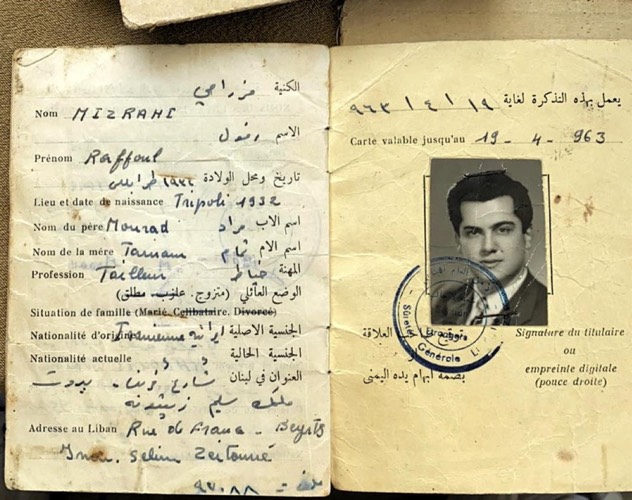 الكنية مزراحي
Nom MIZRAHI
الاسم رفول
Prénom Raffoul
تاريخ ومحل الولادة ١٩٣٢ طرابلس
Lieu et date de naissance Tripoli 1932
اسم الاب مراد
Nom du père Mourad
اسم الام
Nom de la mère
المهنة خياط
Profession Tailleur
الوضع العائلي (متزوج. عازب. مطلق)
Situation de famille (Marié, Celibataire, Divorcé)
الجنسية الاصلية ايرانية
Nationalité d'origine Iranienne
الجنسية الحالية
Nationalité actuelle
العنوان في لبنان شارع فرنسا - بيروت
ملك سليم زيتونه
Adresse au Liban Rue de France - Beyrouth
Imm. Selim Zeitouné
يعمل بهذه التذكرة لغاية ١٩ / ٤ / ٩٦٣
Carte valable jusqu'au 19 - 4 - 963
Sûreté Générale
توقيع صاحب العلاقة
Signature du titulaire
ou
بصمة ابهام يده اليمنى
empreinte digitale
(pouce droite)